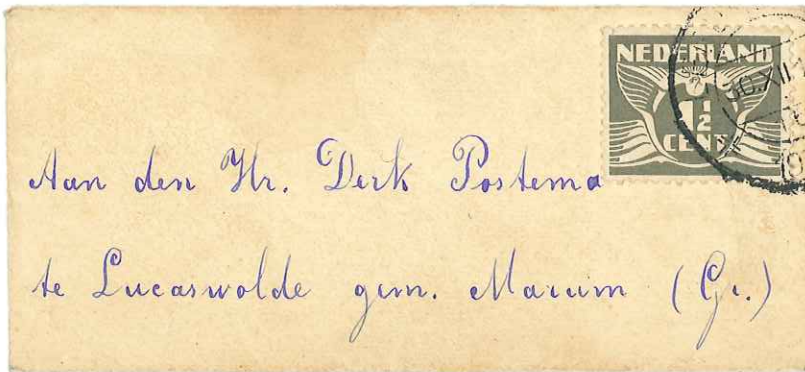 NEDERLAND
1½
CENT
30.XII
Aan den Hr. Derk Postema
te Lucaswolde gem. Marum (Gr.)